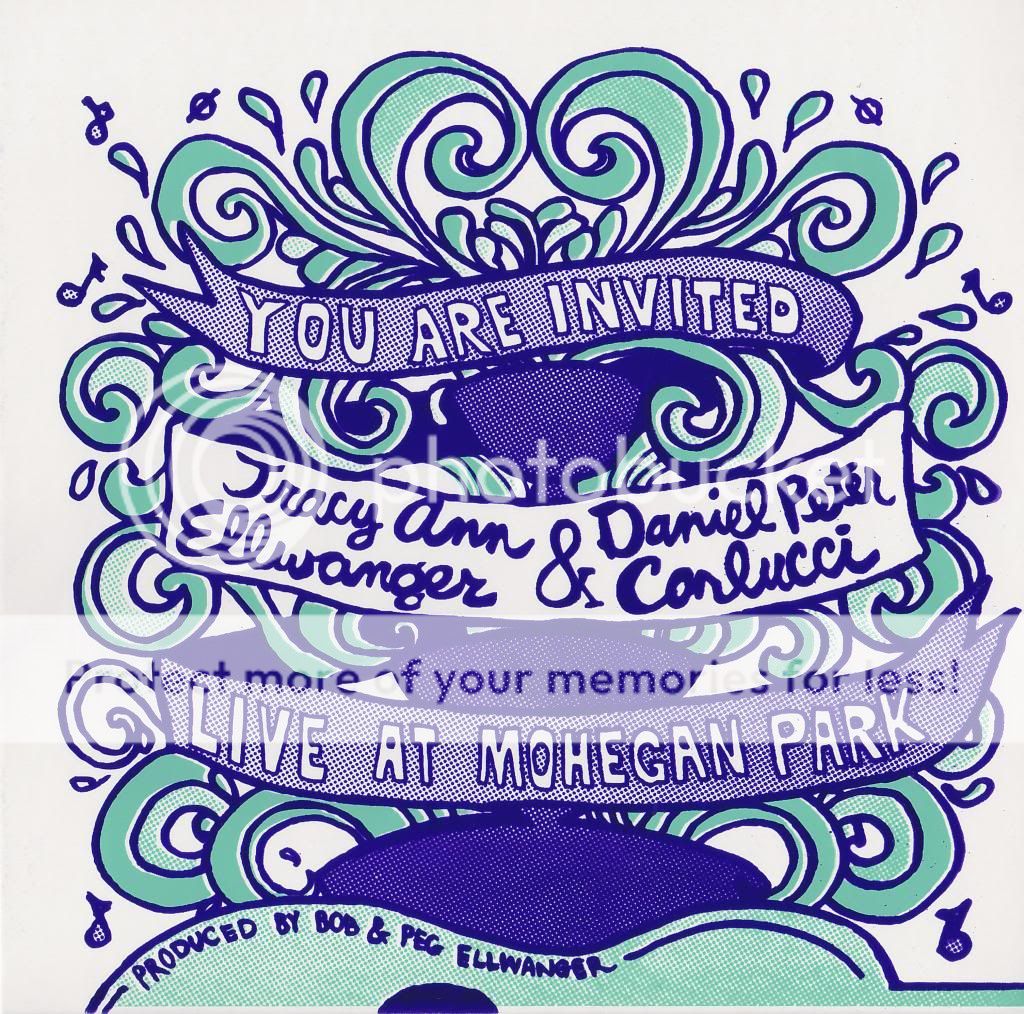 YOU ARE INVITED
Tracy Ann Ellwanger
&
Daniel Peter Carlucci
photobucket
Protect more of your memories for less!
LIVE AT MOHEGAN PARK
PRODUCED BY BOB & PEG ELLWANGER